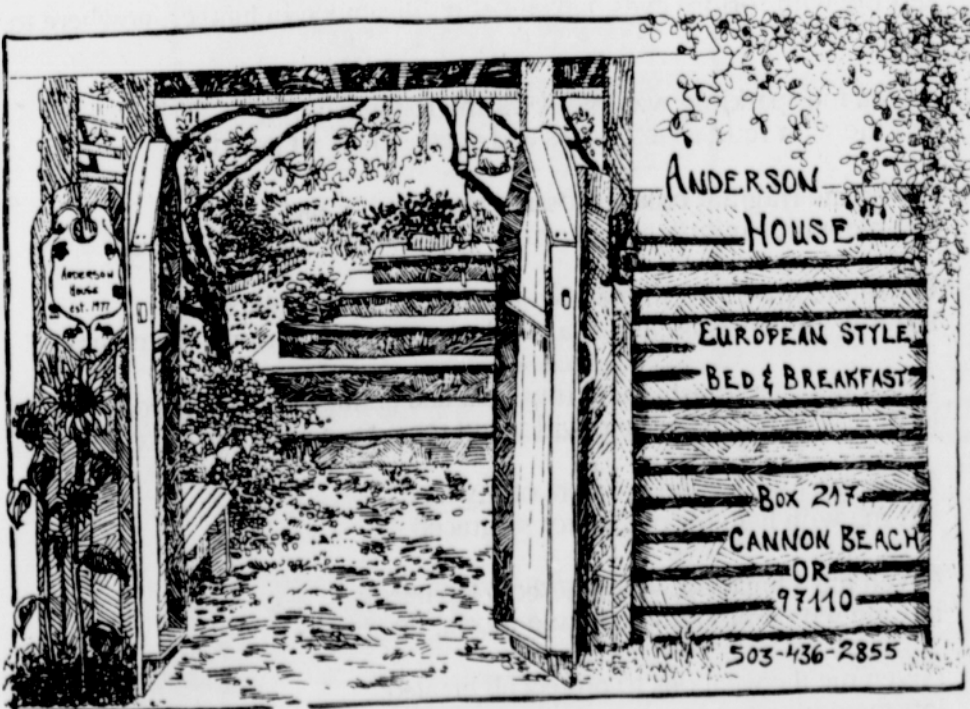 Anderson
House
est. 1977
ANDERSON
HOUSE
EUROPEAN STYLE
BED & BREAKFAST
BOX 217
CANNON BEACH
OR
97110
503-436-2855